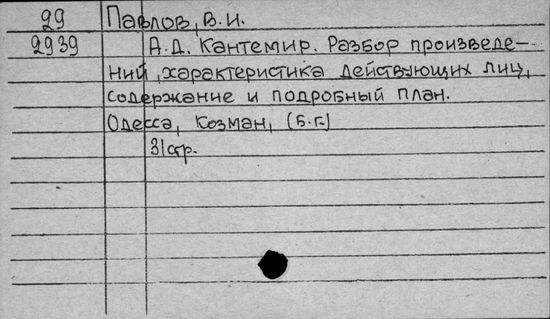 29 Павлов, В. И.
2939 А. Д. Кантемир. Разбор произведе-
ний, характеристика действующих лиц,
содержание и подробный план.
Одесса, Козман, (б. г.)
31 стр.